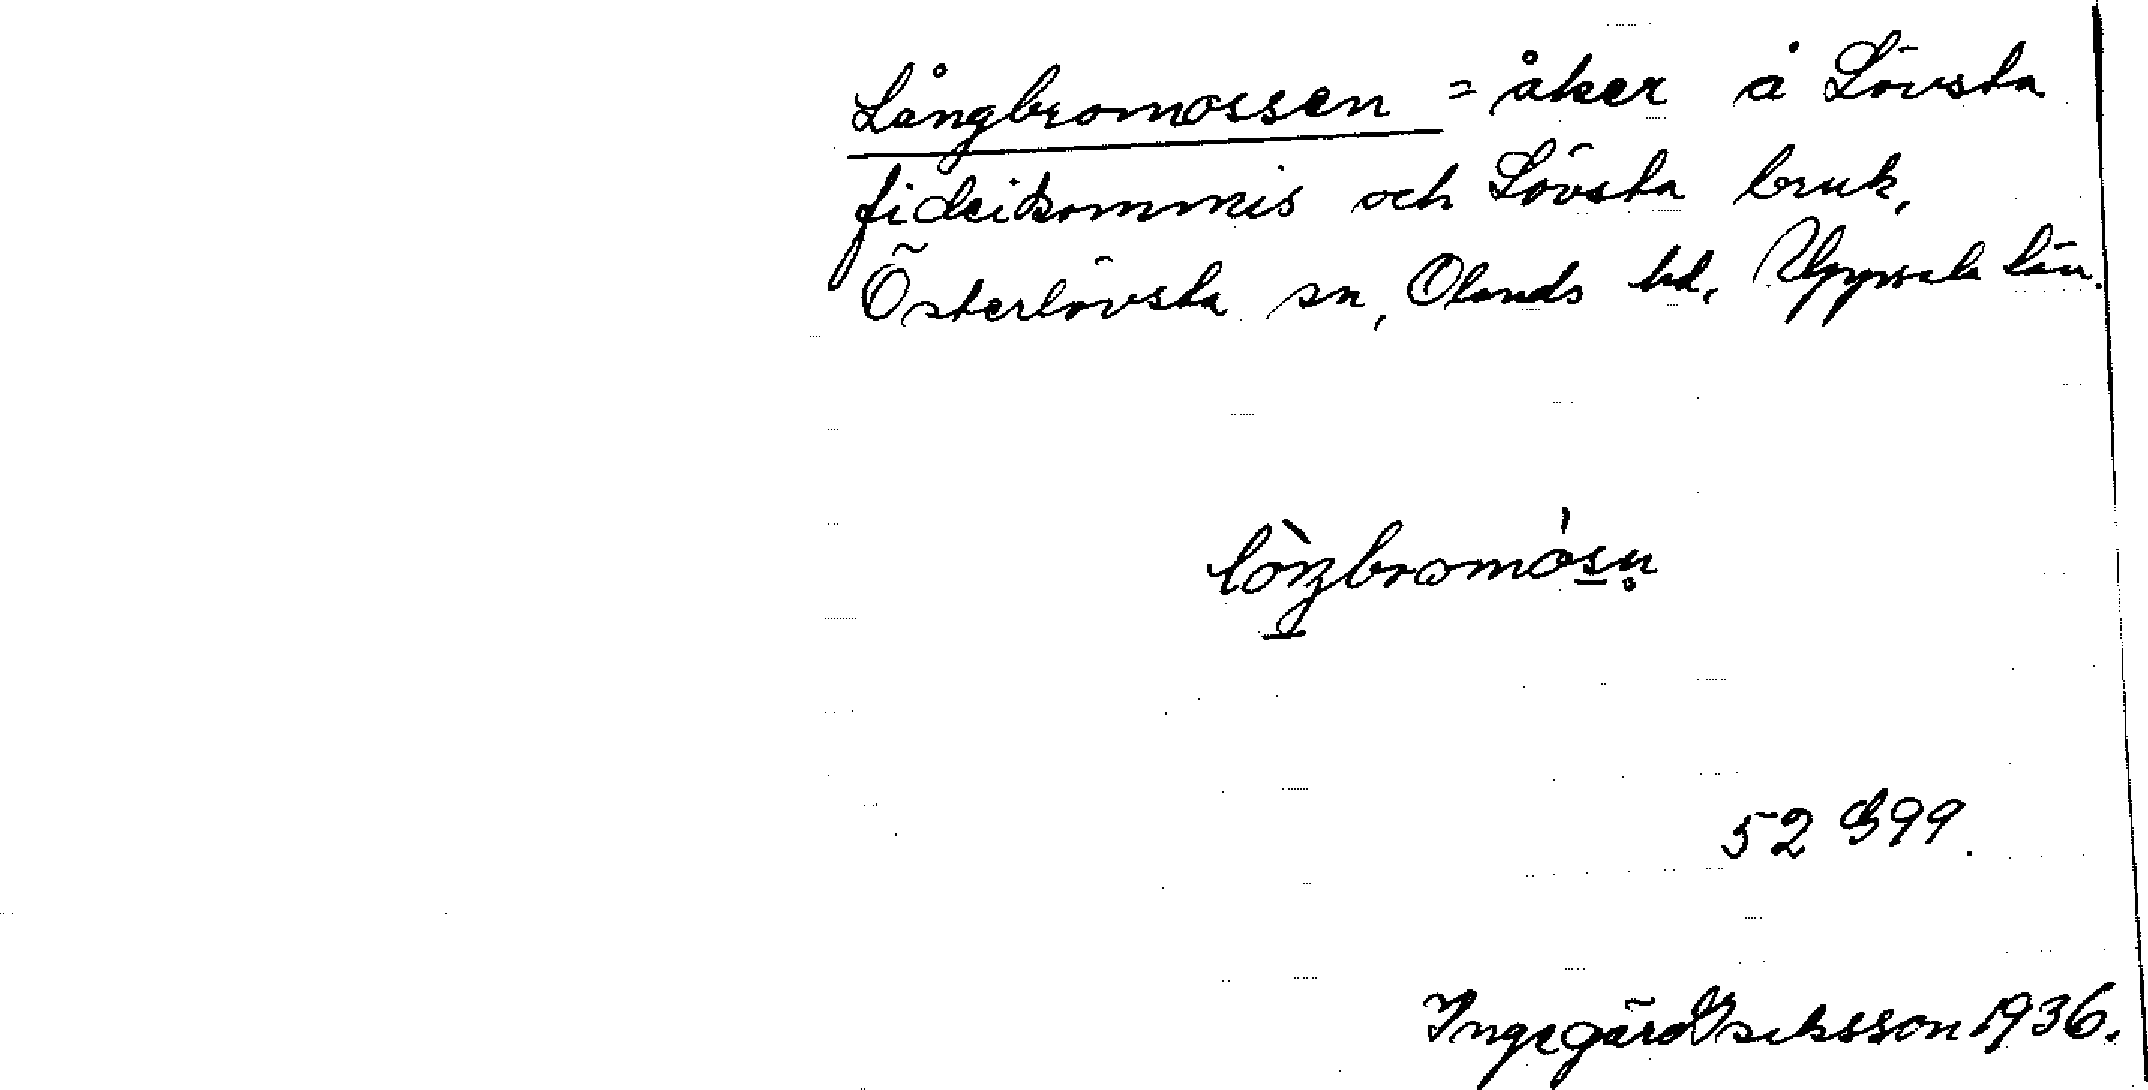 Långbromossen = åker å Lövsta
fideikommis och Lövsta bruk,
Österlövsta sn, Olands hd, Uppsala län.
52 G99.
Ingegärd 1936.